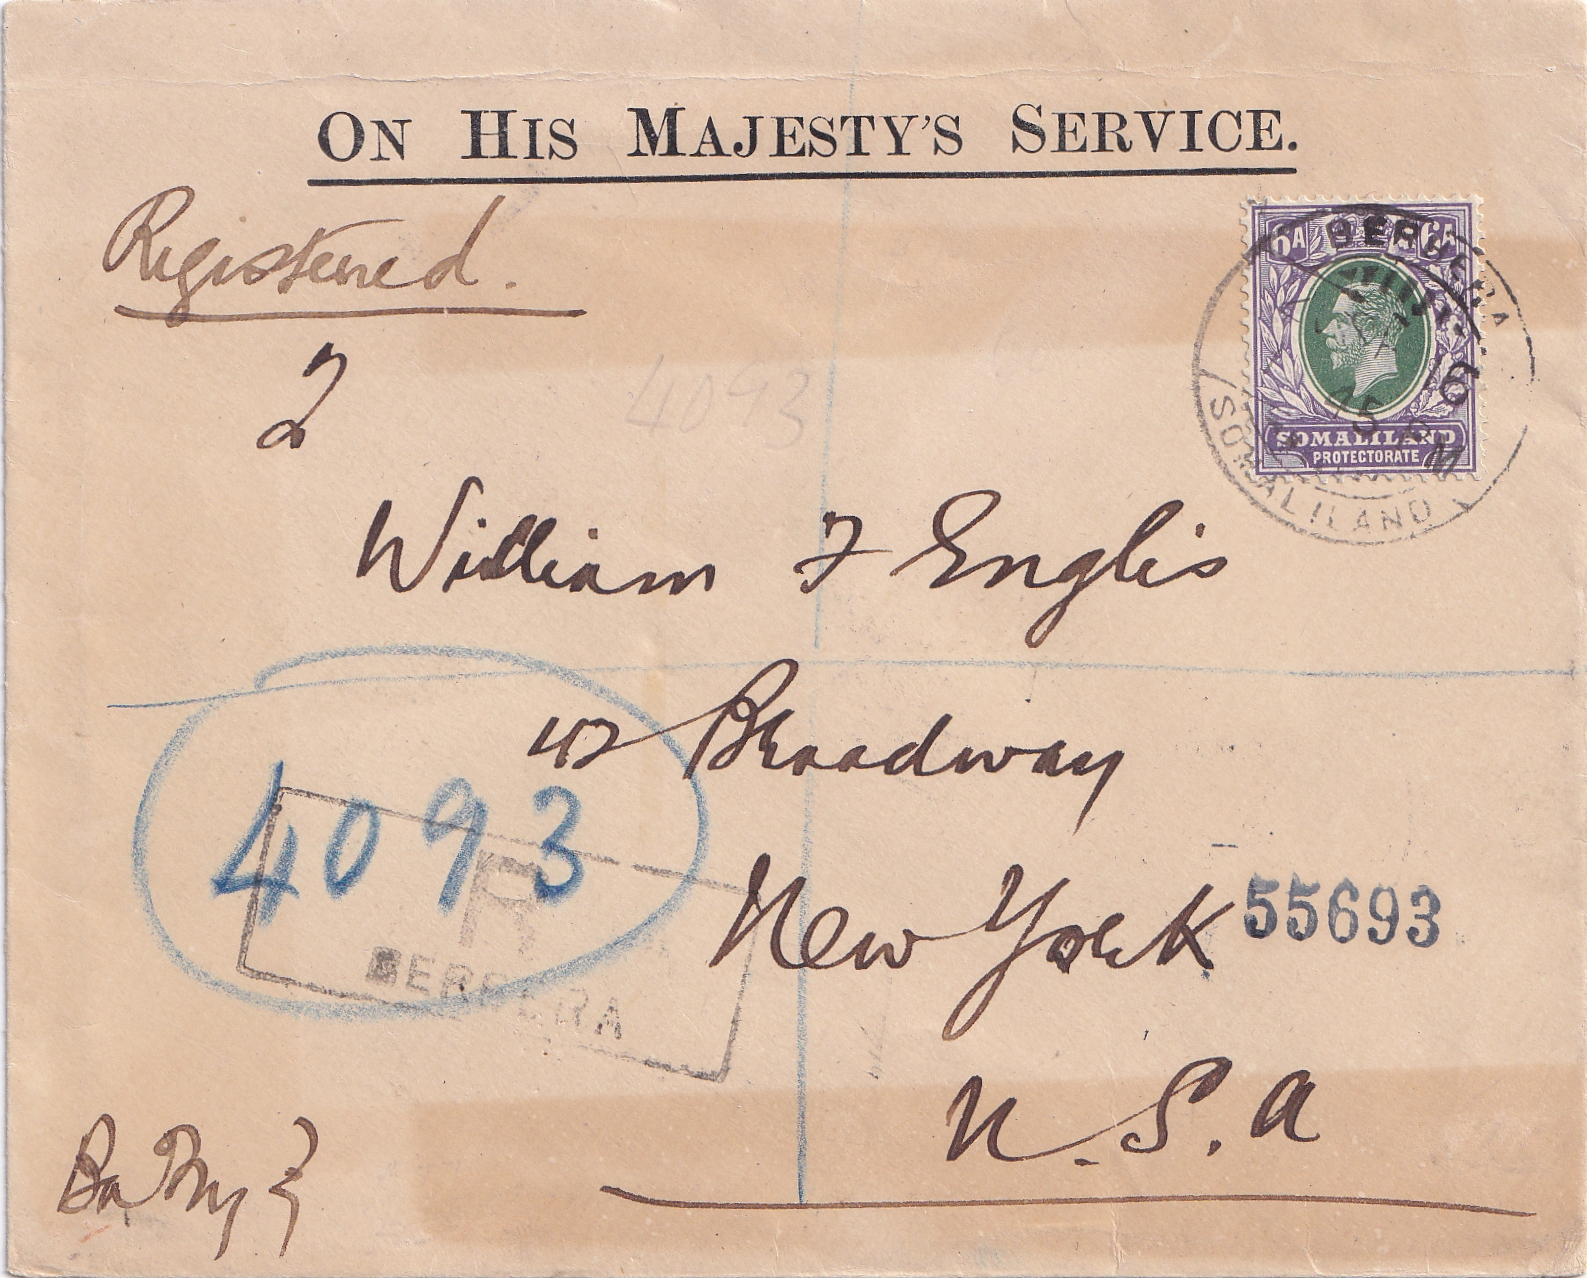 ON HIS MAJESTY'S SERVICE.
Registered.
2
6A 6A
BERBERA
16
15
M
SOMALILAND
PROTECTORATE
SOMALILAND
4093
William F Englis
42 Broadway
4093
R
BERBERA
New York
55693
U.S.A